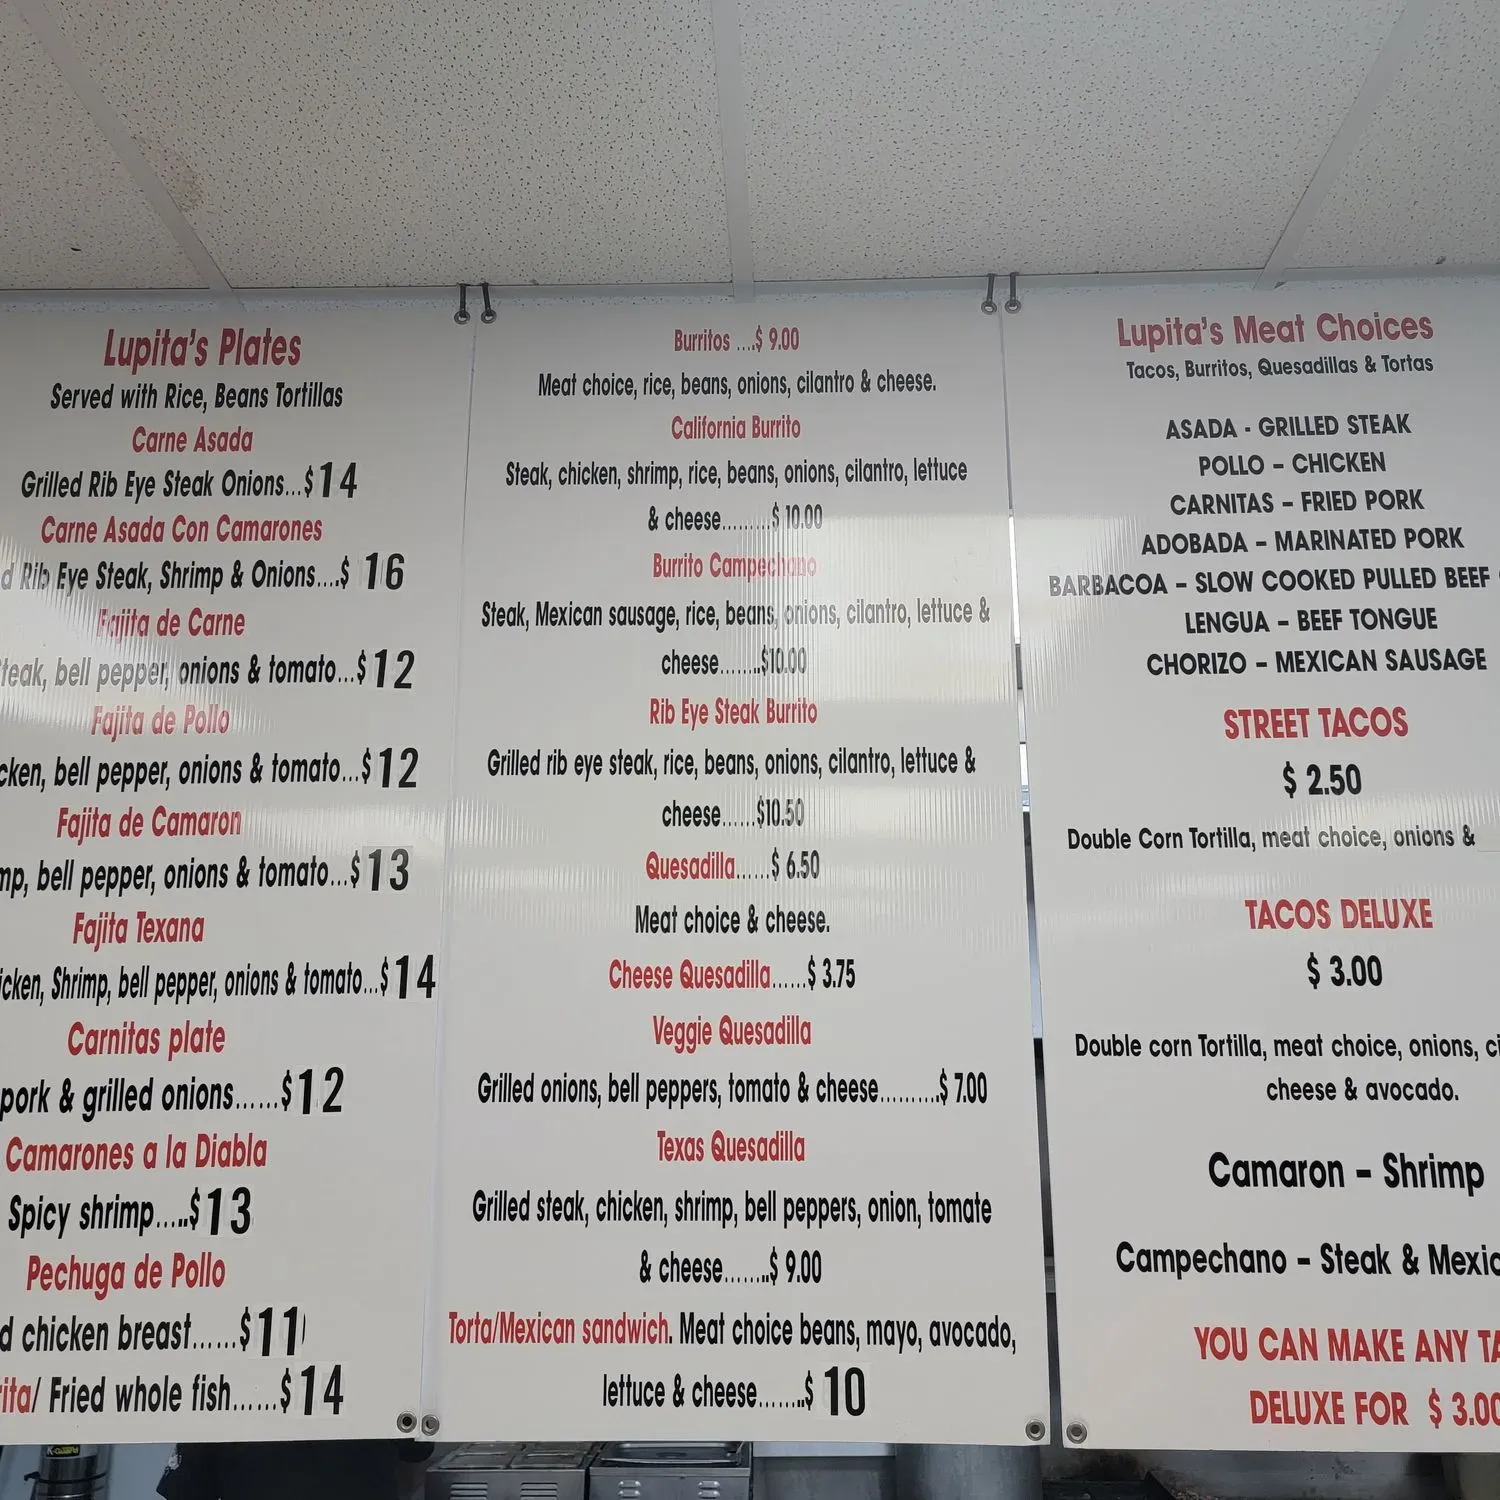 Lupita's Plates
Served with Rice, Beans Tortillas
Carne Asada
Grilled Rib Eye Steak Onions...$14
Carne Asada Con Camarones
Rib Eye Steak, Shrimp & Onions....$ 16
Fajita de Carne
bell pepper, onions & tomato...$12
Fajita de Pollo
bell pepper, onions & tomato...$12
Fajita de Camaron
bell pepper, onions & tomato...$13
Fajita Texana
Shrimp, bell pepper, onions & tomato...$14
Carnitas plate
pork & grilled onions......$12
Camarones a la Diabla
Spicy shrimp.....$13
Pechuga de Pollo
chicken breast......$11
/ Fried whole fish......$14
Burritos ....$ 9.00
Meat choice, rice, beans, onions, cilantro & cheese.
California Burrito
Steak, chicken, shrimp, rice, beans, onions, cilantro, lettuce
& cheese.........$ 10.00
Burrito Campechano
Steak, Mexican sausage, rice, beans, onions, cilantro, lettuce &
cheese........$10.00
Rib Eye Steak Burrito
Grilled rib eye steak, rice, beans, onions, cilantro, lettuce &
cheese......$10.50
Quesadilla......$ 6.50
Meat choice & cheese.
Cheese Quesadilla......$ 3.75
Veggie Quesadilla
Grilled onions, bell peppers, tomato & cheese..........$ 7.00
Texas Quesadilla
Grilled steak, chicken, shrimp, bell peppers, onion, tomate
& cheese........$ 9.00
Torta/Mexican sandwich. Meat choice beans, mayo, avocado,
lettuce & cheese........$ 10
Lupita's Meat Choices
Tacos, Burritos, Quesadillas & Tortas
ASADA - GRILLED STEAK
POLLO – CHICKEN
CARNITAS – FRIED PORK
ADOBADA – MARINATED PORK
BARBACOA – SLOW COOKED PULLED BEEF
LENGUA – BEEF TONGUE
CHORIZO – MEXICAN SAUSAGE
STREET TACOS
$ 2.50
Double Corn Tortilla, meat choice, onions &
TACOS DELUXE
$ 3.00
Double corn Tortilla, meat choice, onions,
cheese & avocado.
Camaron – Shrimp
Campechano – Steak &
YOU CAN MAKE ANY
DELUXE FOR $ 3.00